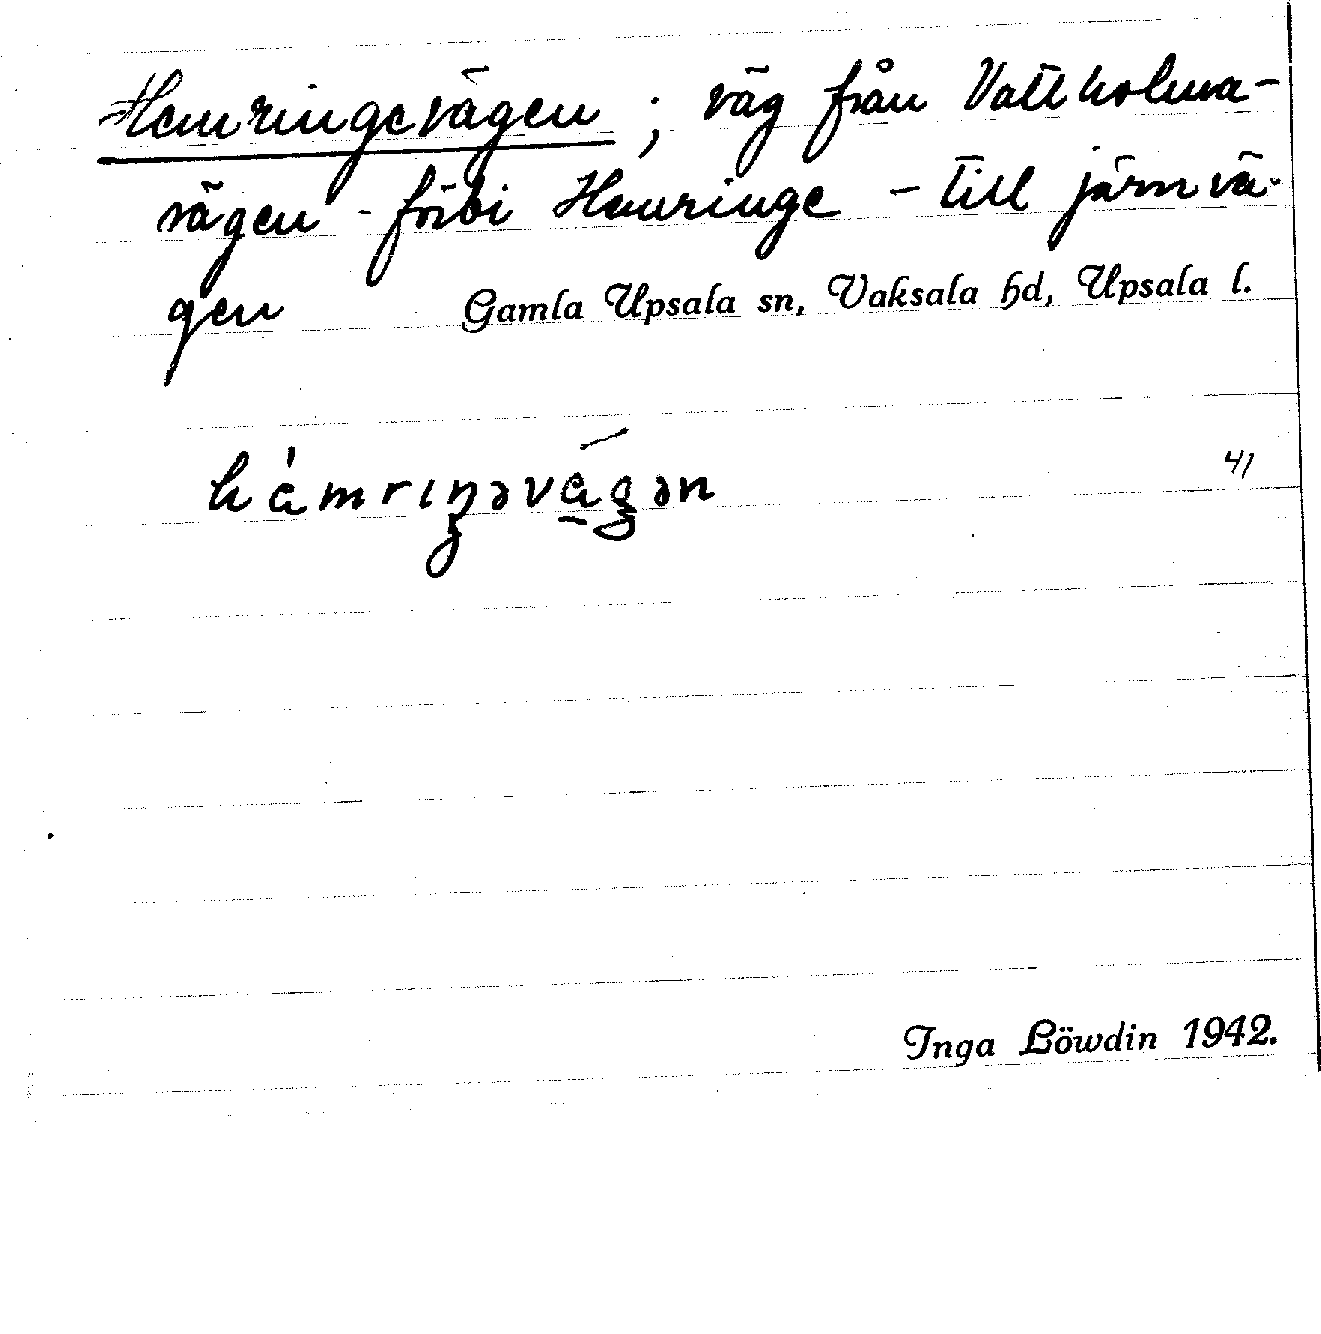 Hemringevägen ; väg från Vattholma-
vägen - förbi Hemringe - till järnvä-
gen Gamla Upsala sn, Vaksala hd, Upsala l.
hämrıŋəvägən 41
Inga Löwdin 1942.